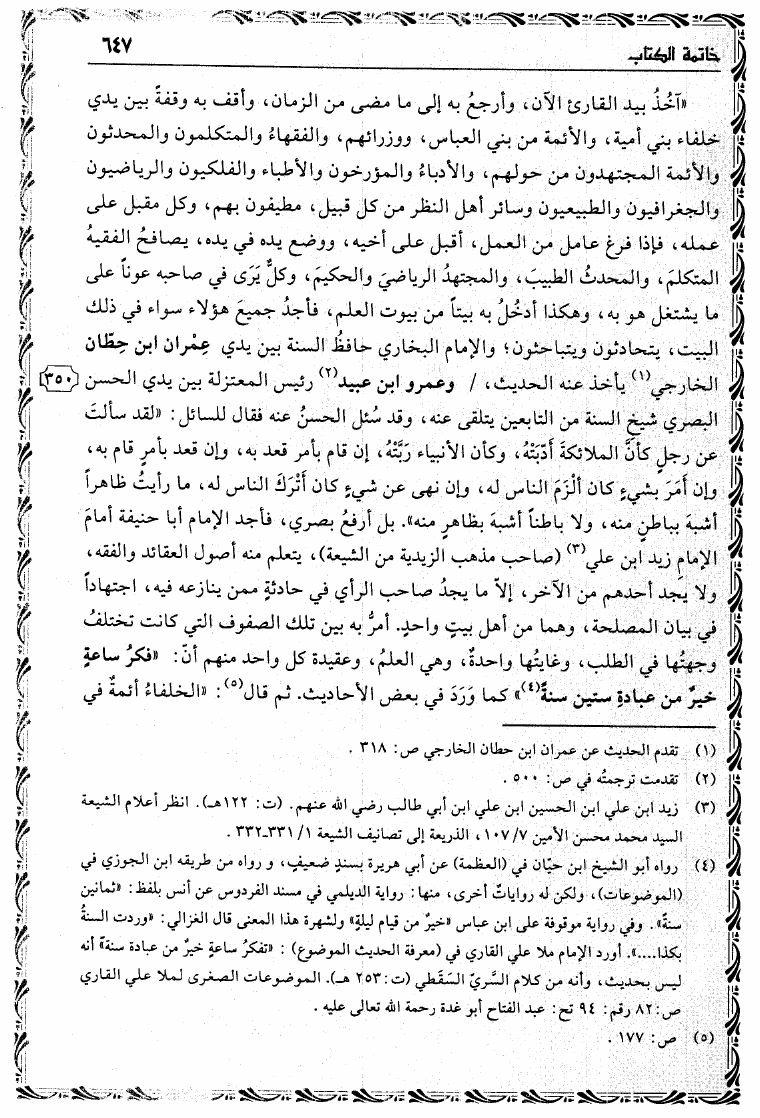 خاتمة الكتاب ٦٤٧
«آخُذُ بيد القارئ الآن، وأرجعُ به إلى ما مضى من الزمان، وأقف به وقفةً بين يدي
خلفاء بني أمية، والأئمة من بني العباس، ووزرائهم، والفقهاءُ والمتكلمون والمحدثون
والأئمة المجتهدون من حولهم، والأدباءُ والمؤرخون والأطباء والفلكيون والرياضيون
والجغرافيون والطبيعيون وسائر أهل النظر من كل قبيل، مطيفون بهم، وكل مقبل على
عمله، فإذا فرغ عامل من العمل، أقبل على أخيه، ووضع يده في يده، يصافحُ الفقيهُ
المتكلمَ، والمحدثُ الطبيبَ، والمجتهدُ الرياضيَ والحكيمَ، وكلٌّ يَرَى في صاحبه عوناً على
ما يشتغل هو به، وهكذا أدخُلُ به بيتاً من بيوت العلم، فأجدُ جميعَ هؤلاء سواء في ذلك
البيت، يتحادثون ويتباحثون؛ والإمام البخاري حافظُ السنة بين يدي عِمْران ابن حِطّان
الخارجي(١) يأخذ عنه الحديث، / وعمرو ابن عبيد(٢) رئيس المعتزلة بين يدي الحسن [٣٥٠]
البصري شيخ السنة من التابعين يتلقى عنه، وقد سُئل الحسنُ عنه فقال للسائل: «لقد سألتَ
عن رجلٍ كأنَّ الملائكةَ أدّبَتْهُ، وكأن الأنبياء رَبَّتْهُ، إن قام بأمر قعد به، وإن قعد بأمرٍ قام به،
وإن أمَرَ بشيءٍ كان ألْزَمَ الناس له، وإن نهى عن شيءٍ كان أتْرَكَ الناس له، ما رأيتُ ظاهراً
أشبهَ بباطنٍ منه، ولا باطناً أشبهَ بظاهرٍ منه». بل أرفعُ بصري، فأجد الإمام أبا حنيفة أمامَ
الإمامِ زيد ابن علي(٣) (صاحب مذهب الزيدية من الشيعة)، يتعلم منه أصول العقائد والفقه،
ولا يجد أحدهم من الآخر، إلاّ ما يجدُ صاحب الرأي في حادثةٍ ممن ينازعه فيه، اجتهاداً
في بيان المصلحة، وهما من أهل بيتٍ واحدٍ. أمرُّ به بين تلك الصفوف التي كانت تختلفُ
وجهتُها في الطلب، وغايتُها واحدةٌ، وهي العلمُ، وعقيدة كل واحد منهم أنّ: «فكرُ ساعةٍ
خيرٌ من عبادةِ ستين سنةً(٤)» كما وَرَدَ في بعض الأحاديث. ثم قال(٥): «الخلفاءُ أئمةٌ في
(١) تقدم الحديث عن عمران ابن حطان الخارجي ص: ٣١٨ .
(٢) تقدمت ترجمتُه في ص: ٥٠٠ .
(٣) زيد ابن علي ابن الحسين ابن علي ابن أبي طالب رضي الله عنهم. (ت: ١٢٢هـ). انظر أعلام الشيعة
السيد محمد محسن الأمين ١٠٧/٧، الذريعة إلى تصانيف الشيعة ١/ ٣٣١-٣٣٢ .
(٤) رواه أبو الشيخ ابن حيّان في (العظمة) عن أبي هريرة بسندٍ ضعيفٍ، و رواه من طريقه ابن الجوزي في
(الموضوعات)، ولكن له رواياتٌ أخرى، منها: رواية الديلمي في مسند الفردوس عن أنس بلفظ: «ثمانين
سنةً». وفي رواية موقوفة على ابن عباس «خيرٌ من قيام ليلةٍ» ولشهرة هذا المعنى قال الغزالي: «وردت السنةُ
بكذا....». أورد الإمام ملا علي القاري في (معرفة الحديث الموضوع) : «تفكرُ ساعةٍ خيرٌ من عبادة سنة» أنه
ليس بحديث، وأنه من كلام السَّريّ السَقَطي (ت:٢٥٣ هـ). الموضوعات الصغرى لملا علي القاري
ص:٨٢ رقم: ٩٤ تح: عبد الفتاح أبو غدة رحمة الله تعالى عليه .
(٥) ص: ١٧٧ .